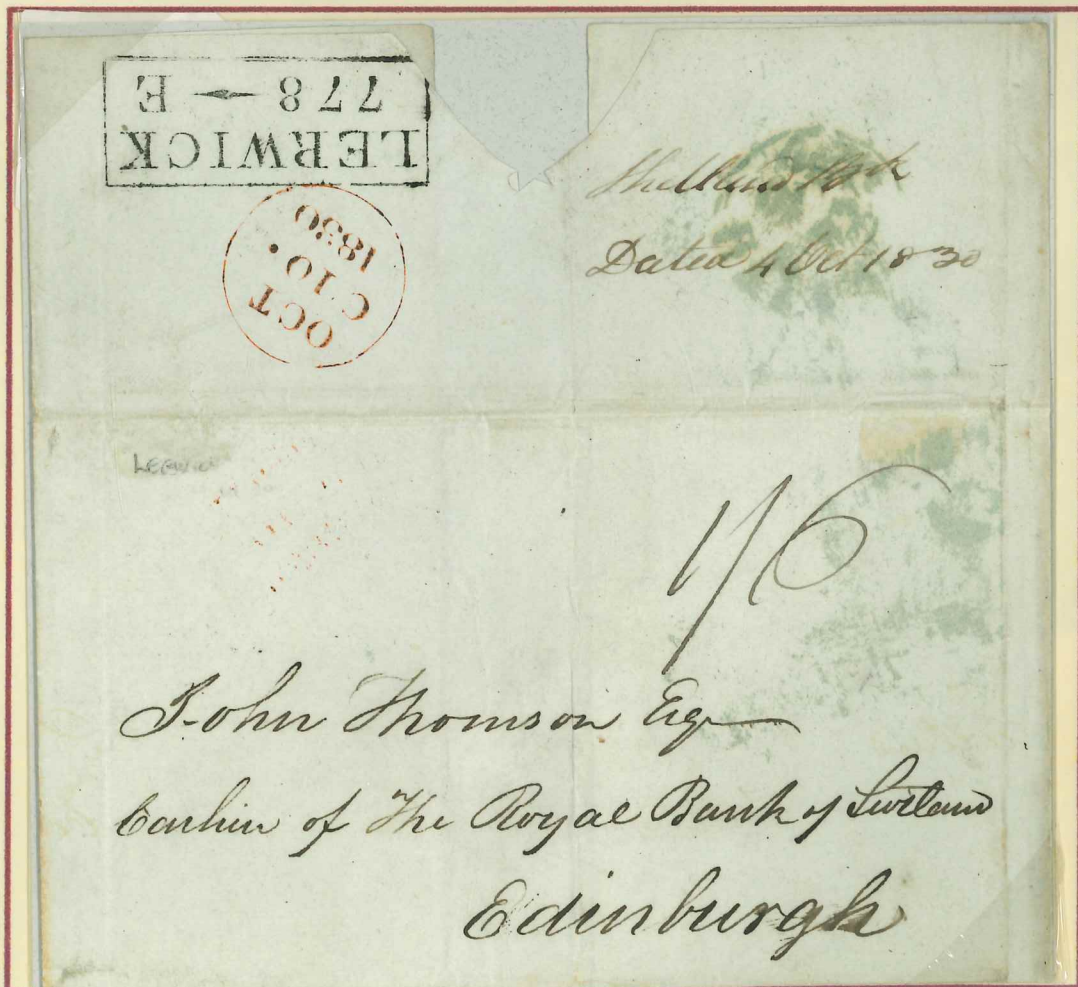 LERWICK
778 - E
OCT
C 10 .
1830
Shetland Bk
Dated 4 Oct 1830
LERWICK
1/6
John Thomson Esqr
Cashier of The Royal Bank of Scotland
Edinburgh